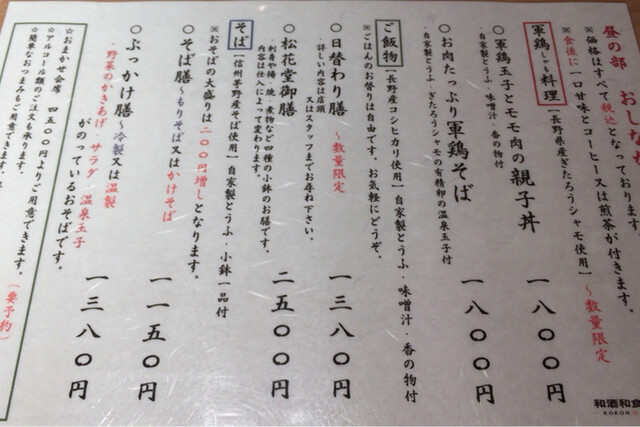 昼の部 おしな
※価格はすべて税込となっております。
※食後に一口甘味とコーヒー又は煎茶が付きます。
軍鶏しゃも料理【長野県産ぎたろうシャモ使用】～数量限定
○軍鶏玉子とモモ肉の親子丼 一八〇〇円
自家製とうふ・味噌汁・香の物付
○お肉たっぷり軍鶏そば 一八〇〇円
自家製とうふ・ぎたろうシャモの有精卵の温泉玉子付
ご飯物【長野産コシヒカリ使用】自家製とうふ・味噌汁・香の物付
※ごはんのお替りは自由です。お気軽にどうぞ。
○日替わり膳 ～数量限定 一三八〇円
・詳しい内容は店頭
又はスタッフまでお尋ね下さい。
○松花堂御膳 二五〇〇円
・刺身や揚・焼・煮物などの四種の小鉢のお膳です。
内容は仕入によって変わります。
そば【信州吉野産そば使用】自家製とうふ・小鉢一品付
※おそばの大盛りは二〇〇円増しとなります。
○そば膳～もりそば又はかけそば 一一五〇円
○ぶっかけ膳～冷製又は温製 一三八〇円
・野菜のかきあげ・サラダ・温泉玉子
がのっているおそばです。
☆おまかせ会席 四五〇〇円よりご用意できます。(要予約)
☆アルコール類のご注文も承ります。
☆簡単なおつまみもご用意できます。
和酒和食
KOKON